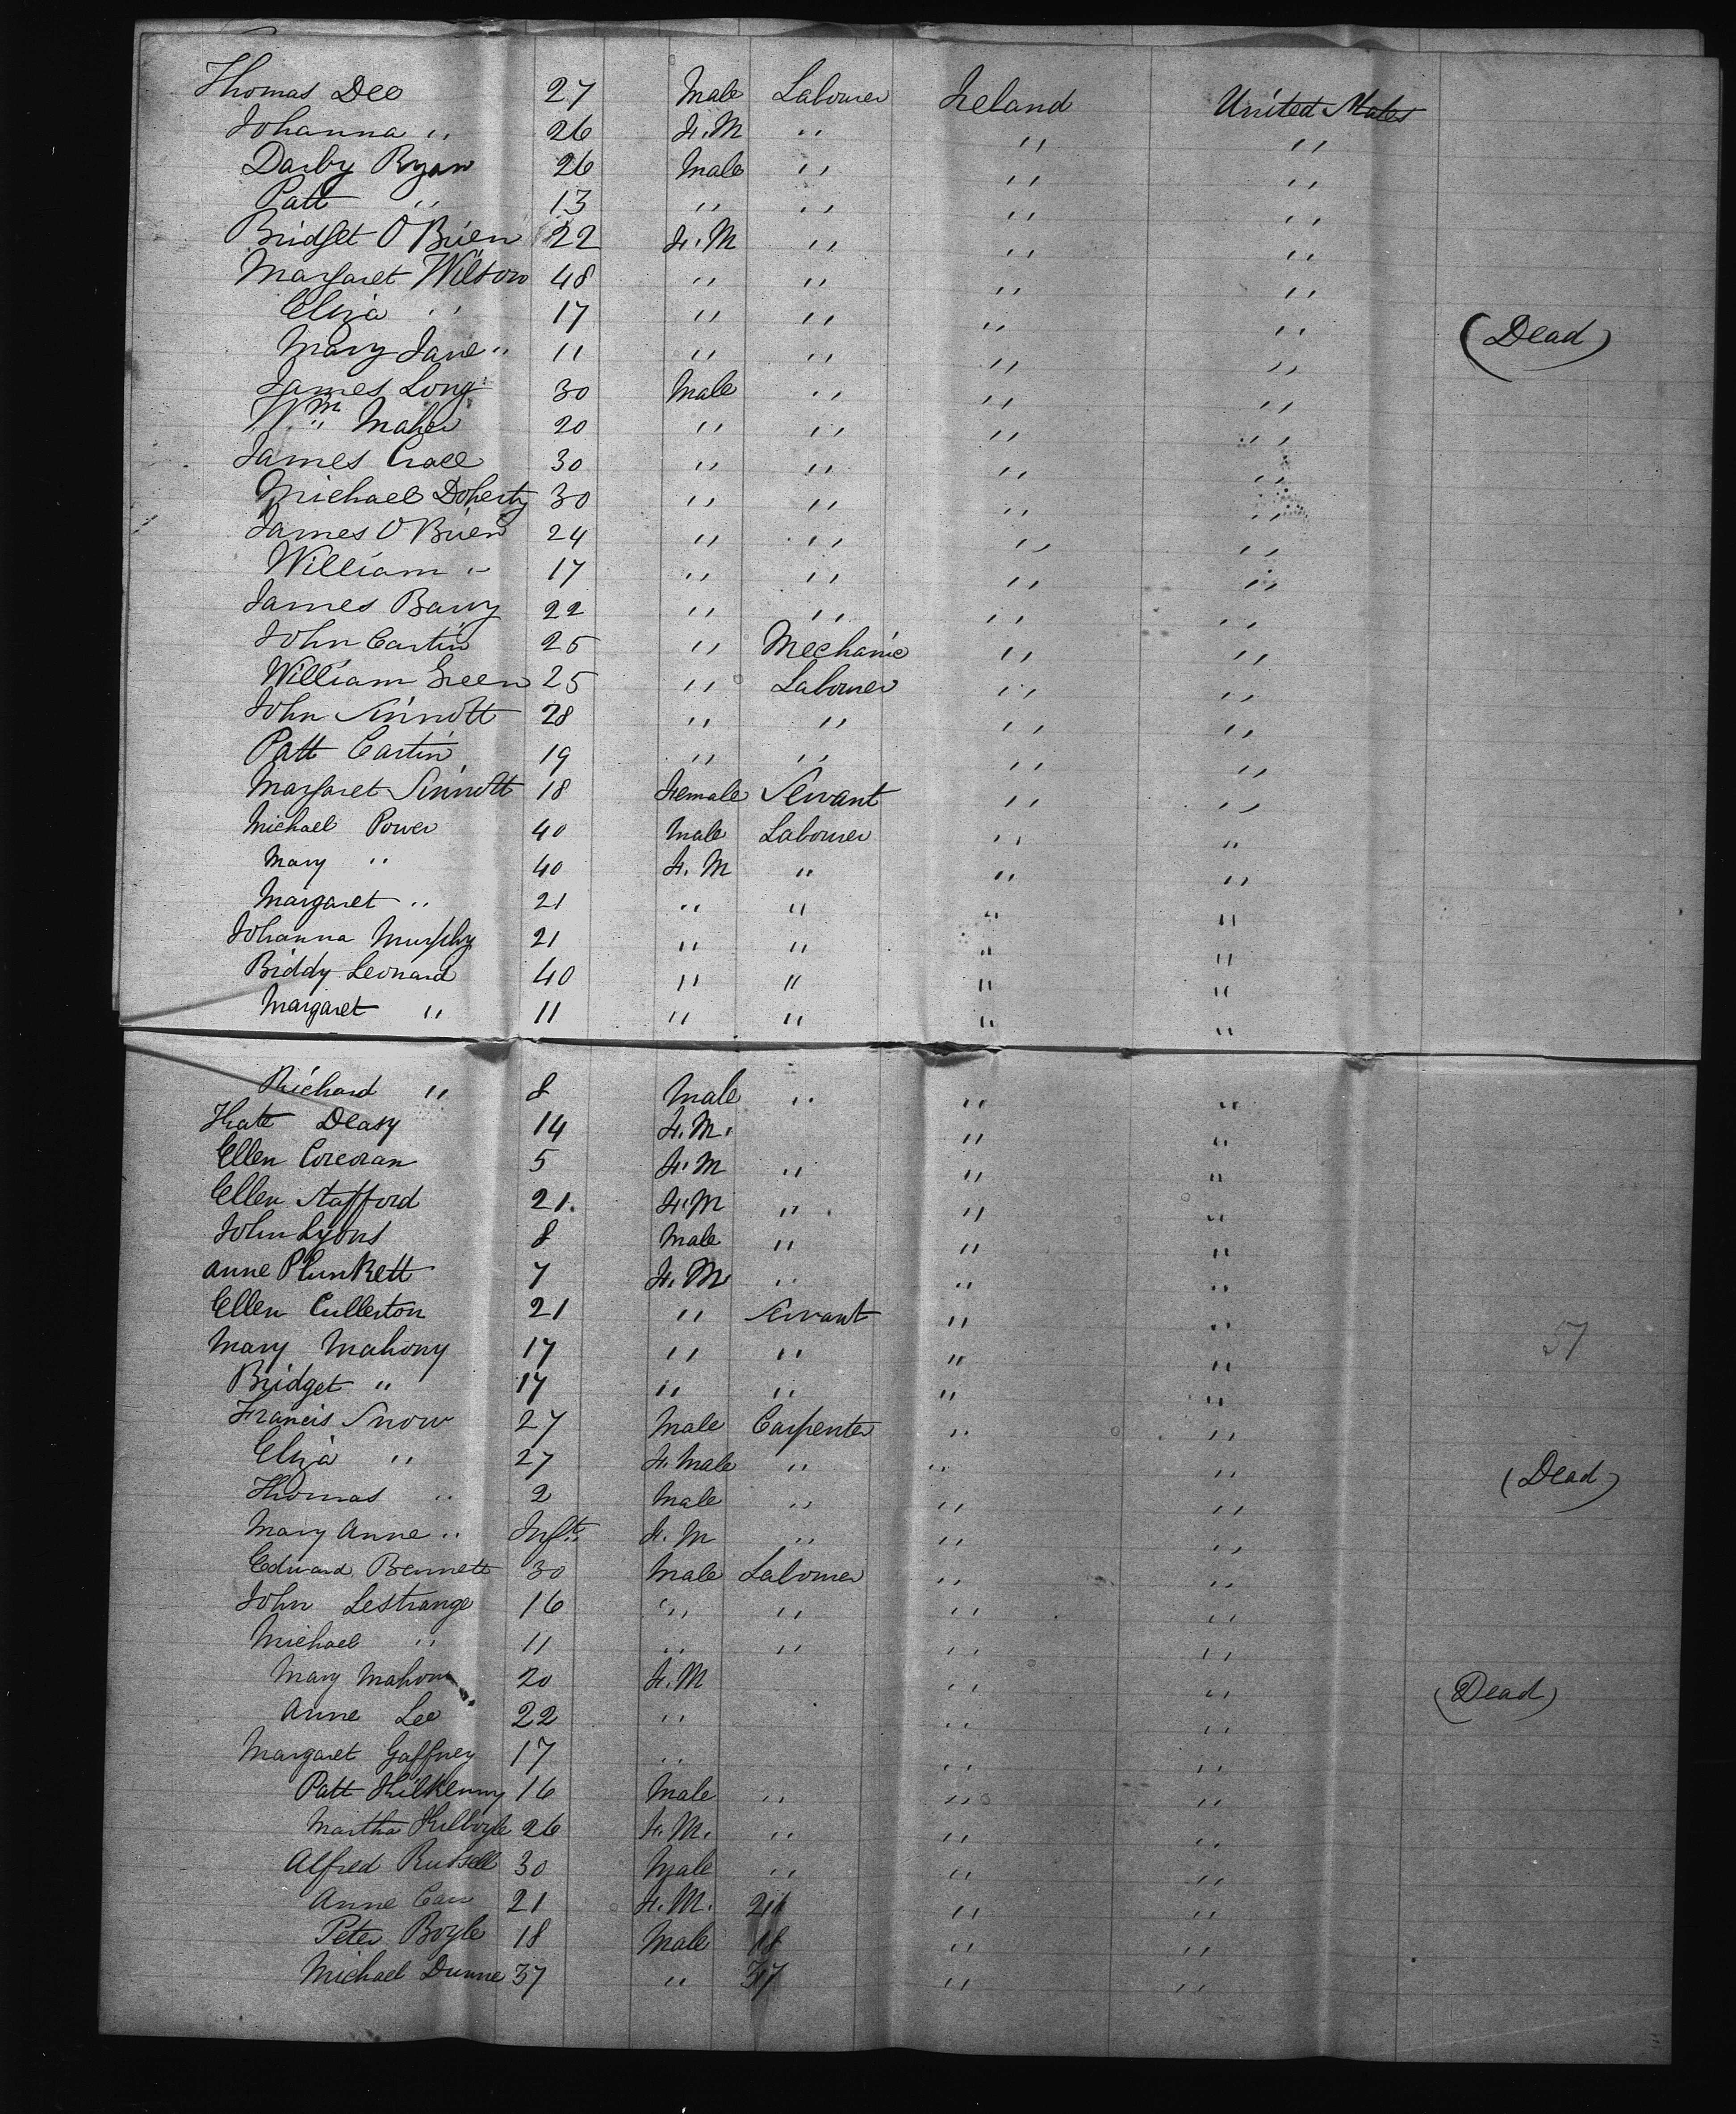 Thomas Dee 27 Male Labourer Ireland United States
Johanna " 26 F.M " " "
Darby Ryan 26 Male " " "
Patt " 13 " " " "
Bridget O'Brien 22 F.M " " "
Margaret Wilson 48 " " " "
Eliza " 17 " " " " (Dead)
Mary Jane " 11 " " " "
James Long 30 Male " " "
Wm Maher 20 " " " "
James 30 " " " "
Michael Doherty 30 " " " "
James O'Brien 24 " " " "
William " 17 " " " "
James Barry 22 " " " "
John Cartin 25 " Mechanic " "
William Green 25 " Labourer " "
John Sinnott 28 " " " "
Patt Cartin 19 " " " "
Margaret Sinnott 18 Female Servant " "
Michael Power 40 Male Labourer " "
Mary " 40 F.M " " "
Margaret " 21 " " " "
Johanna Murphy 21 " " " "
Biddy Leonard 40 " " " "
Margaret " 11 " " " "
Richard " 8 Male " " "
Kate Deasy 14 F.M. " "
Ellen Corcoran 5 F.M " " "
Ellen Stafford 21. F.M " " "
John Lyons 8 Male " " "
Anne Plunkett 7 F.M " " "
Ellen Cullerton 21 " Servant " "
Mary Mahony 17 " " " " 51
Bridget " 17 " " " "
Francis Snow 27 Male Carpenter " "
Eliza " 27 F.Male " " " (Dead)
Thomas " 2 Male " " "
Mary Anne " Inft. F.M " " "
Edward Bennett 30 Male Labourer " "
John Lestrange 16 " " " "
Michael " 11 " " " "
Mary 20 F.M " " (Dead)
Anne Lee 22 " " "
Margaret Gaffney 17 " " "
Patt Kilkenny 16 Male " " "
Martha Kilboyle 26 F.M. " " "
Alfred Russell 30 Male " " "
Anne Carr 21 F.M. 21 " "
Peter Boyle 18 Male 18 " "
Michael Dunne 37 " 37 " "